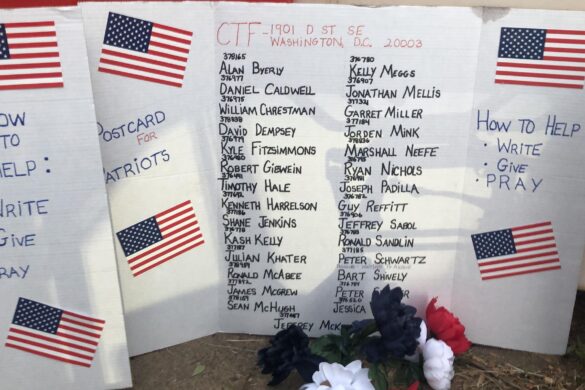 CTF - 1901 D ST SE
WASHINGTON, D.C. 20003
378165
ALAN BYERLY
376977
DANIEL CALDWELL
376975
WILLIAM CHRESTMAN
DAVID DEMPSEY
KYLE FITZSIMMONS
ROBERT GIBWEIN
TIMOTHY HALE
KENNETH HARRELSON
SHANE JENKINS
KASH KELLY
JULIAN KHATER
RONALD MCABEE
JAMES MCGREW
SEAN MCHUGH
377687
JEFFREY MCK
376780
KELLY MEGGS
376907
JONATHAN MELLIS
GARRET MILLER
377184
JORDEN MINK
MARSHALL NEEFE
RYAN NICHOLS
JOSEPH PADILLA
GUY REFFITT
JEFFREY SABOL
RONALD SANDLIN
377185
PETER SCHWARTZ
BART SHIVELY
PETER
JESSICA
POSTCARD
FOR
PATRIOTS
OW
TO
HELP :
WRITE
GIVE
PRAY
HOW TO HELP :
• WRITE
• GIVE
• PRAY